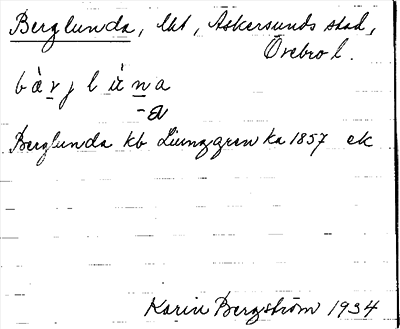 Berglunda, lht, Askersunds stad,
Örebro l.
bàrjlúna
-a
Berglunda kb Ljunggren ka 1857 ek
Karin Bergström 1934